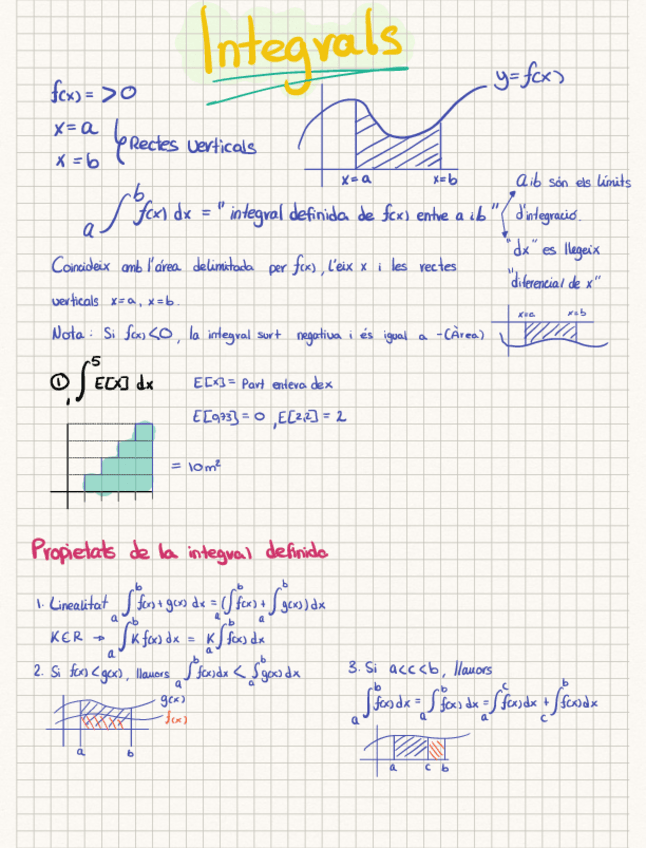 Integrals
f(x) = > 0
y = f(x)
x = a
x = b
Rectes verticals
x = a
x = b
a∫b f(x) dx = "integral definida de f(x) entre a i b"
a i b són els límits
d'integració.
"dx" es llegeix
"diferencial de x"
Coincideix amb l'área delimitada per f(x), l'eix x i les rectes
verticals x=a, x=b.
Nota: Si f(x) < 0, la integral surt negativa i és igual a -(Àrea)
x=a
x=b
① 1∫5 E[x] dx
E[x] = Part entera de x
E[0,73] = 0, E[2,2] = 2
= 10m²
Propietats de la integral definida
1. Linealitat a∫b f(x) + g(x) dx = (a∫b f(x) + a∫b g(x)) dx
K∈R → a∫b K f(x) dx = K a∫b f(x) dx
2. Si f(x) < g(x), llavors a∫b f(x) dx < a∫b g(x) dx
g(x)
f(x)
a
b
3. Si a<c<b, llavors
a∫b f(x) dx = a∫b f(x) dx = a∫c f(x) dx + c∫b f(x) dx
a
c
b